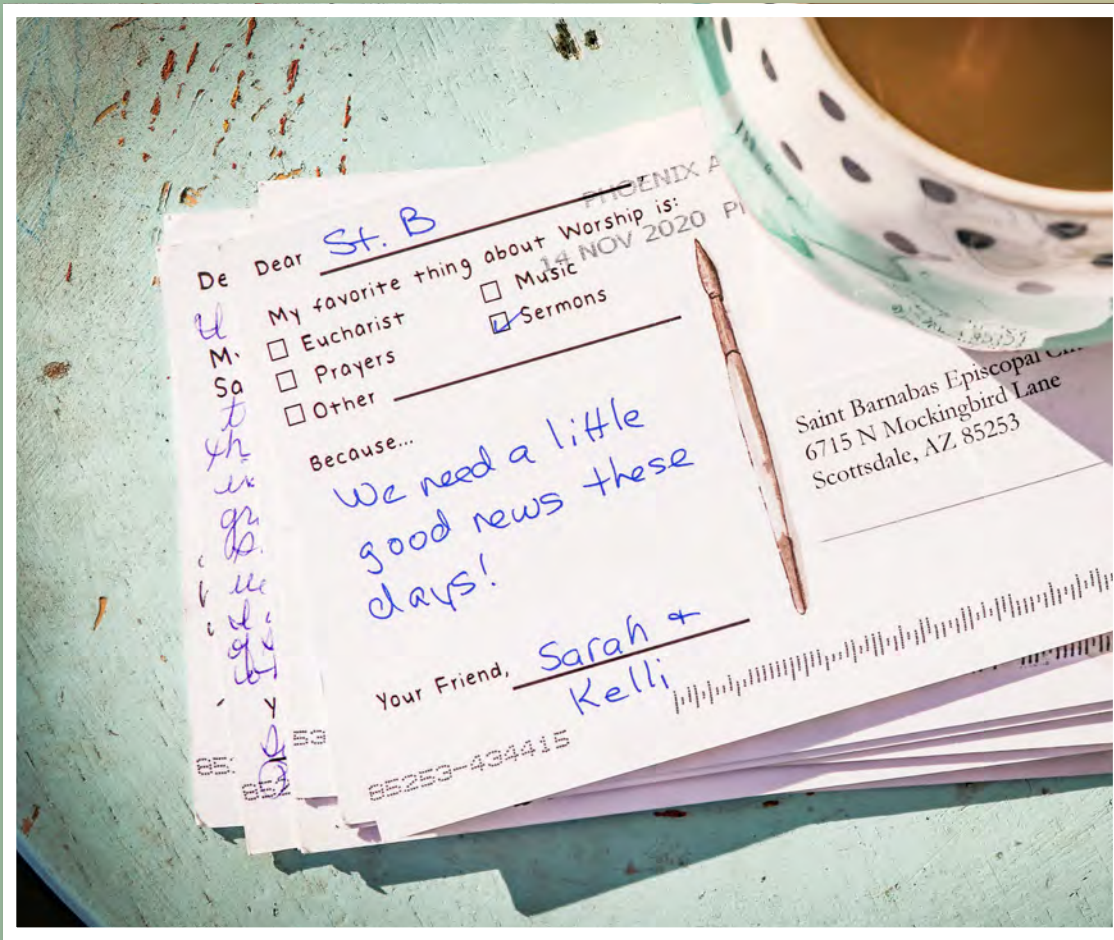 PHOENIX A
14 NOV 2020 P
Dear St. B
My favorite thing about Worship is:
☐ Eucharist
☐ Music
☐ Prayers
☑ Sermons
☐ Other
Because...
We need a little
good news these
days!
Your Friend, Sarah +
Kelli
Saint Barnabas Episcopal
6715 N Mockingbird Lane
Scottsdale, AZ 85253
85253-434415
De
M.
Sa
Y
53